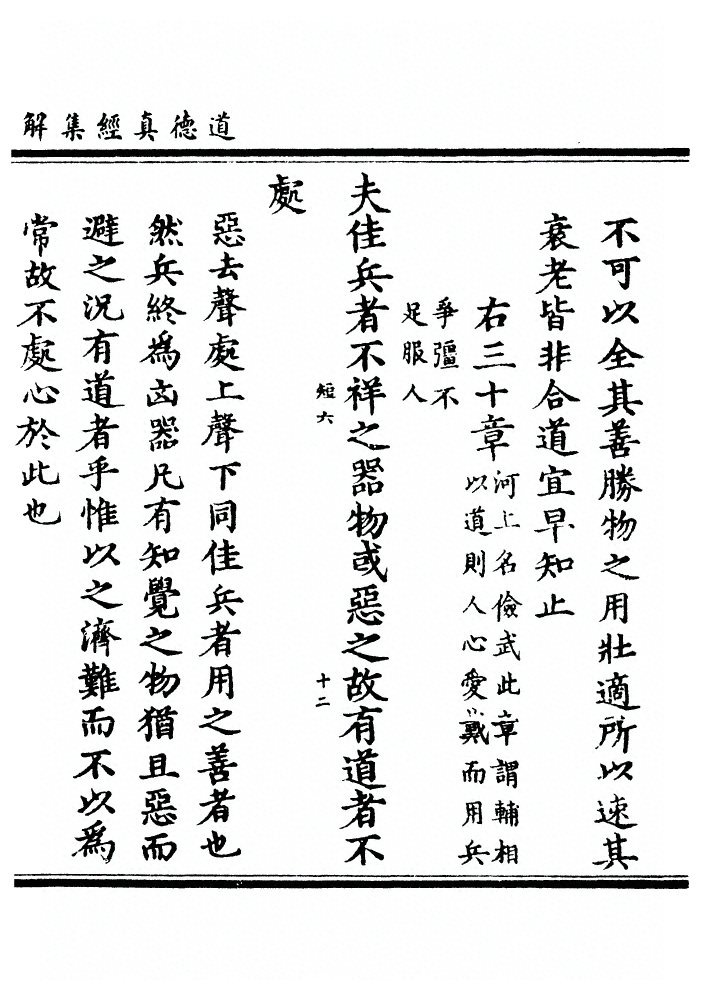 道德真經集解
不可以全其善勝物之用壯適所以速其
衰老皆非合道宜早知止
右三十章
河上名儉武此章謂輔相
以道則人心愛戴而用兵
爭彊不
足服人
夫佳兵者不祥之器物或惡之故有道者不
短六
十二
處
惡去聲處上聲下同佳兵者用之善者也
然兵終為凶器凡有知覺之物猶且惡而
避之況有道者乎惟以之濟難而不以為
常故不處心於此也